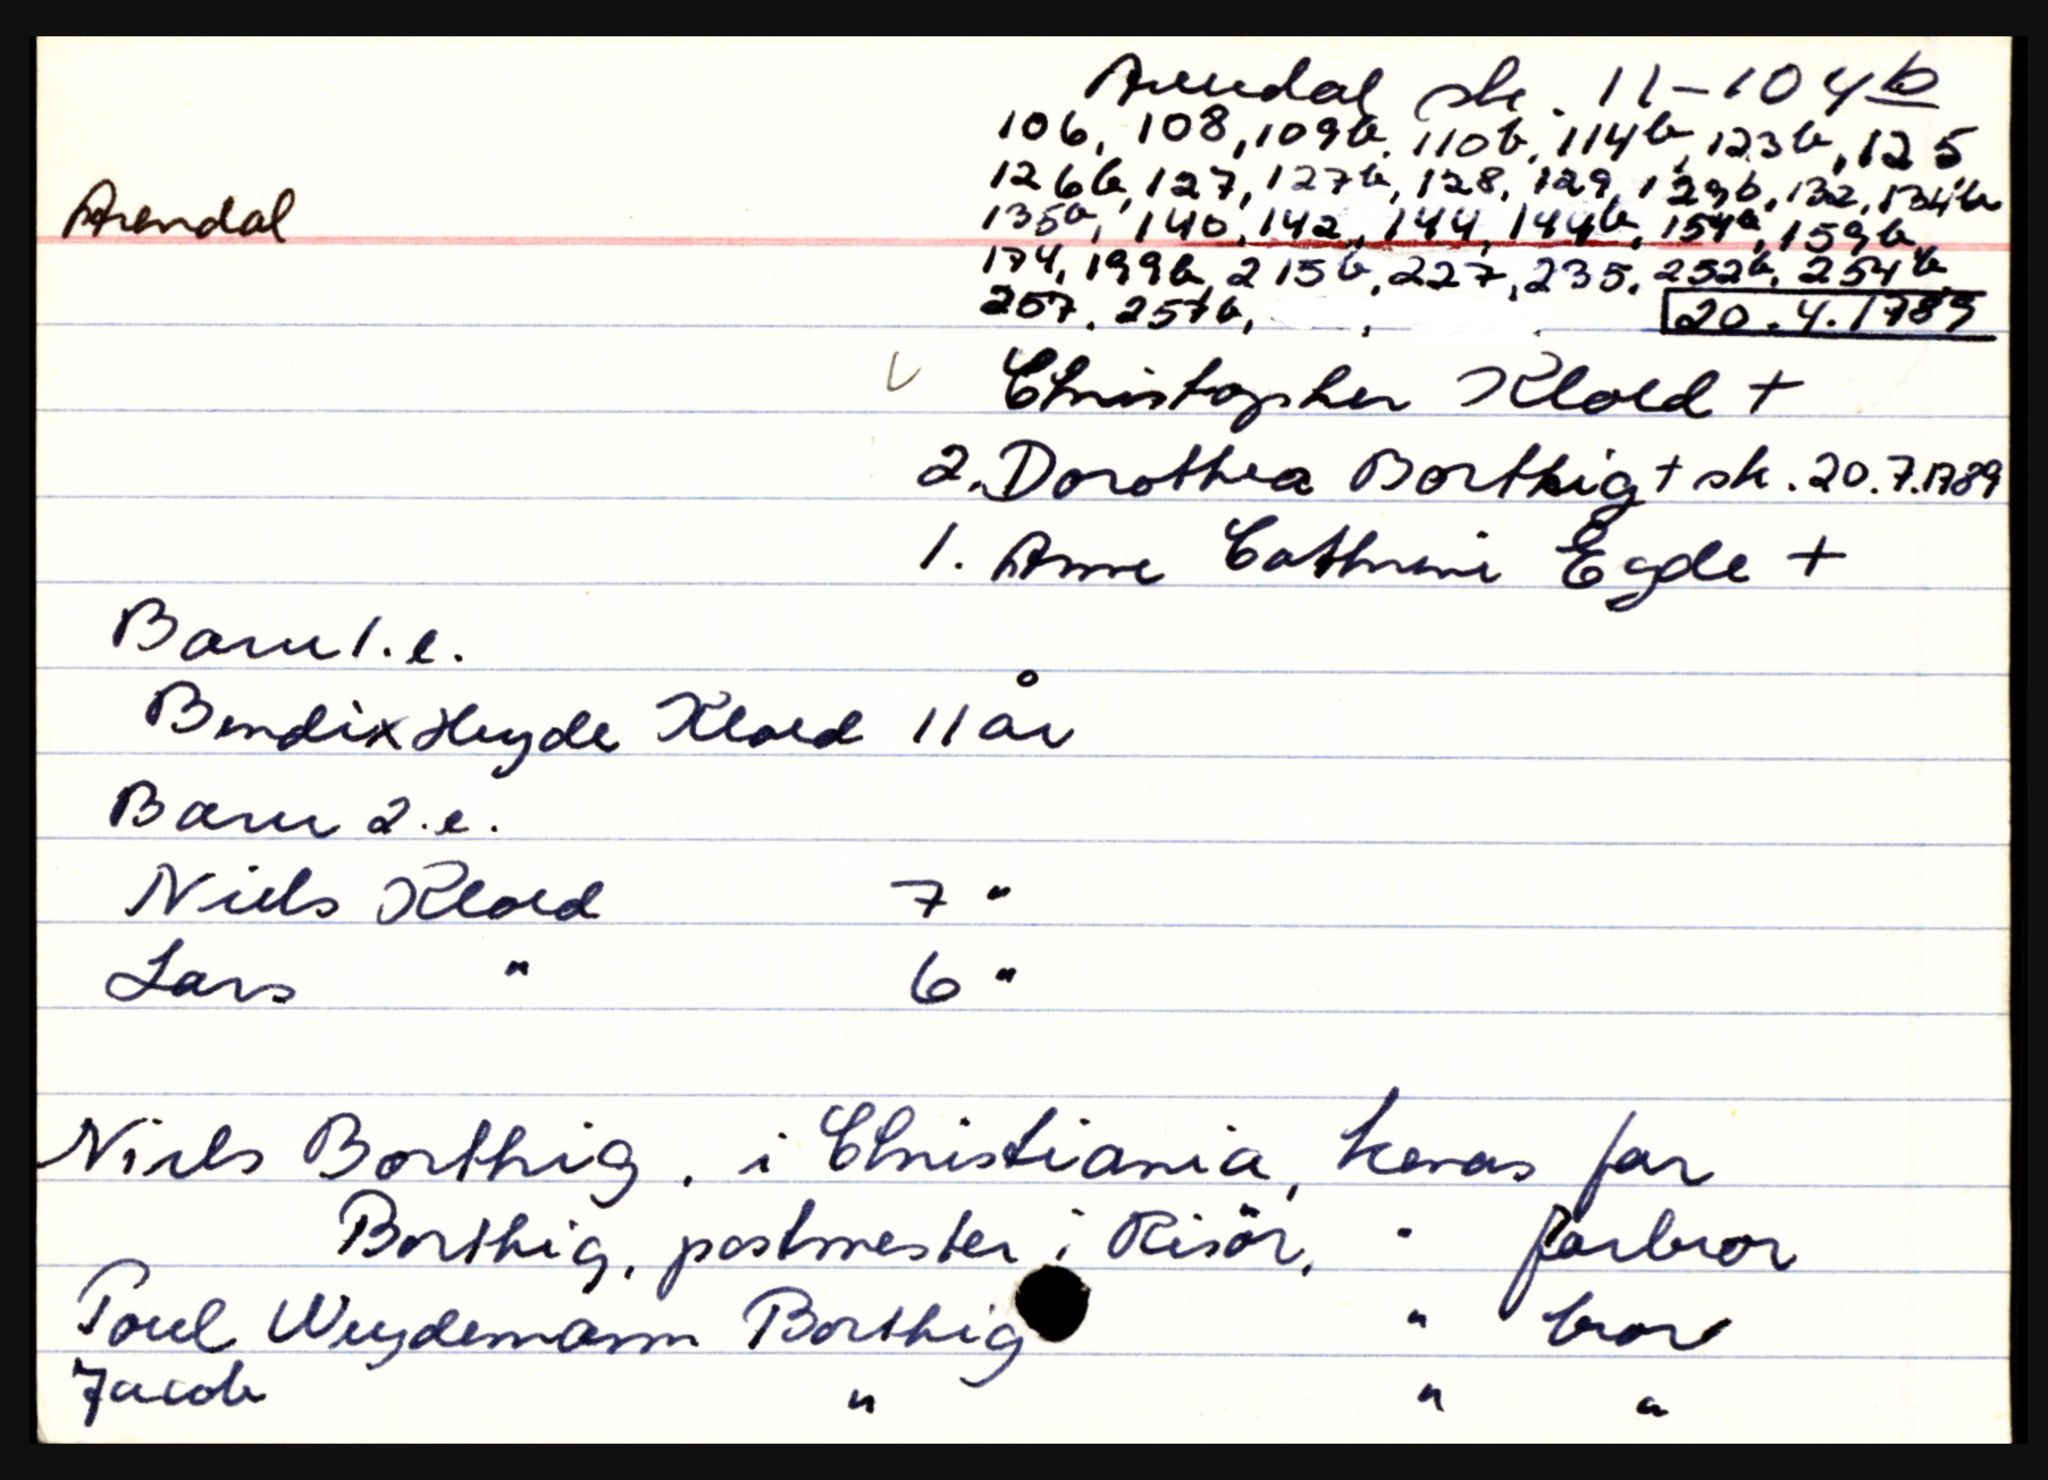 Arendal sk. 11-104b
106, 108, 109b, 110b, 114b, 123b, 125
126b, 127, 127b, 128, 129, 129b, 132, 134b
Arendal
135b, 140, 142, 144, 144b, 154b, 159b,
174, 199b, 215b, 227, 235, 252b, 254b
257, 257b,
20.4.1789
Christopher Kloed +
2. Dorothea Borthig + sk. 20.7.1789
1. Anne Cathrine Egde +
Barn 1. e.
Bendix Heyde Kloed 11 år
Barn 2. e.
Niels Kloed 7 "
Lars " 6 "
Niels Borthig, i Christiania, konas far
Borthig, postmester i Risör, " farbror
Poul Weydemann Borthig " bror
Jacob " " "